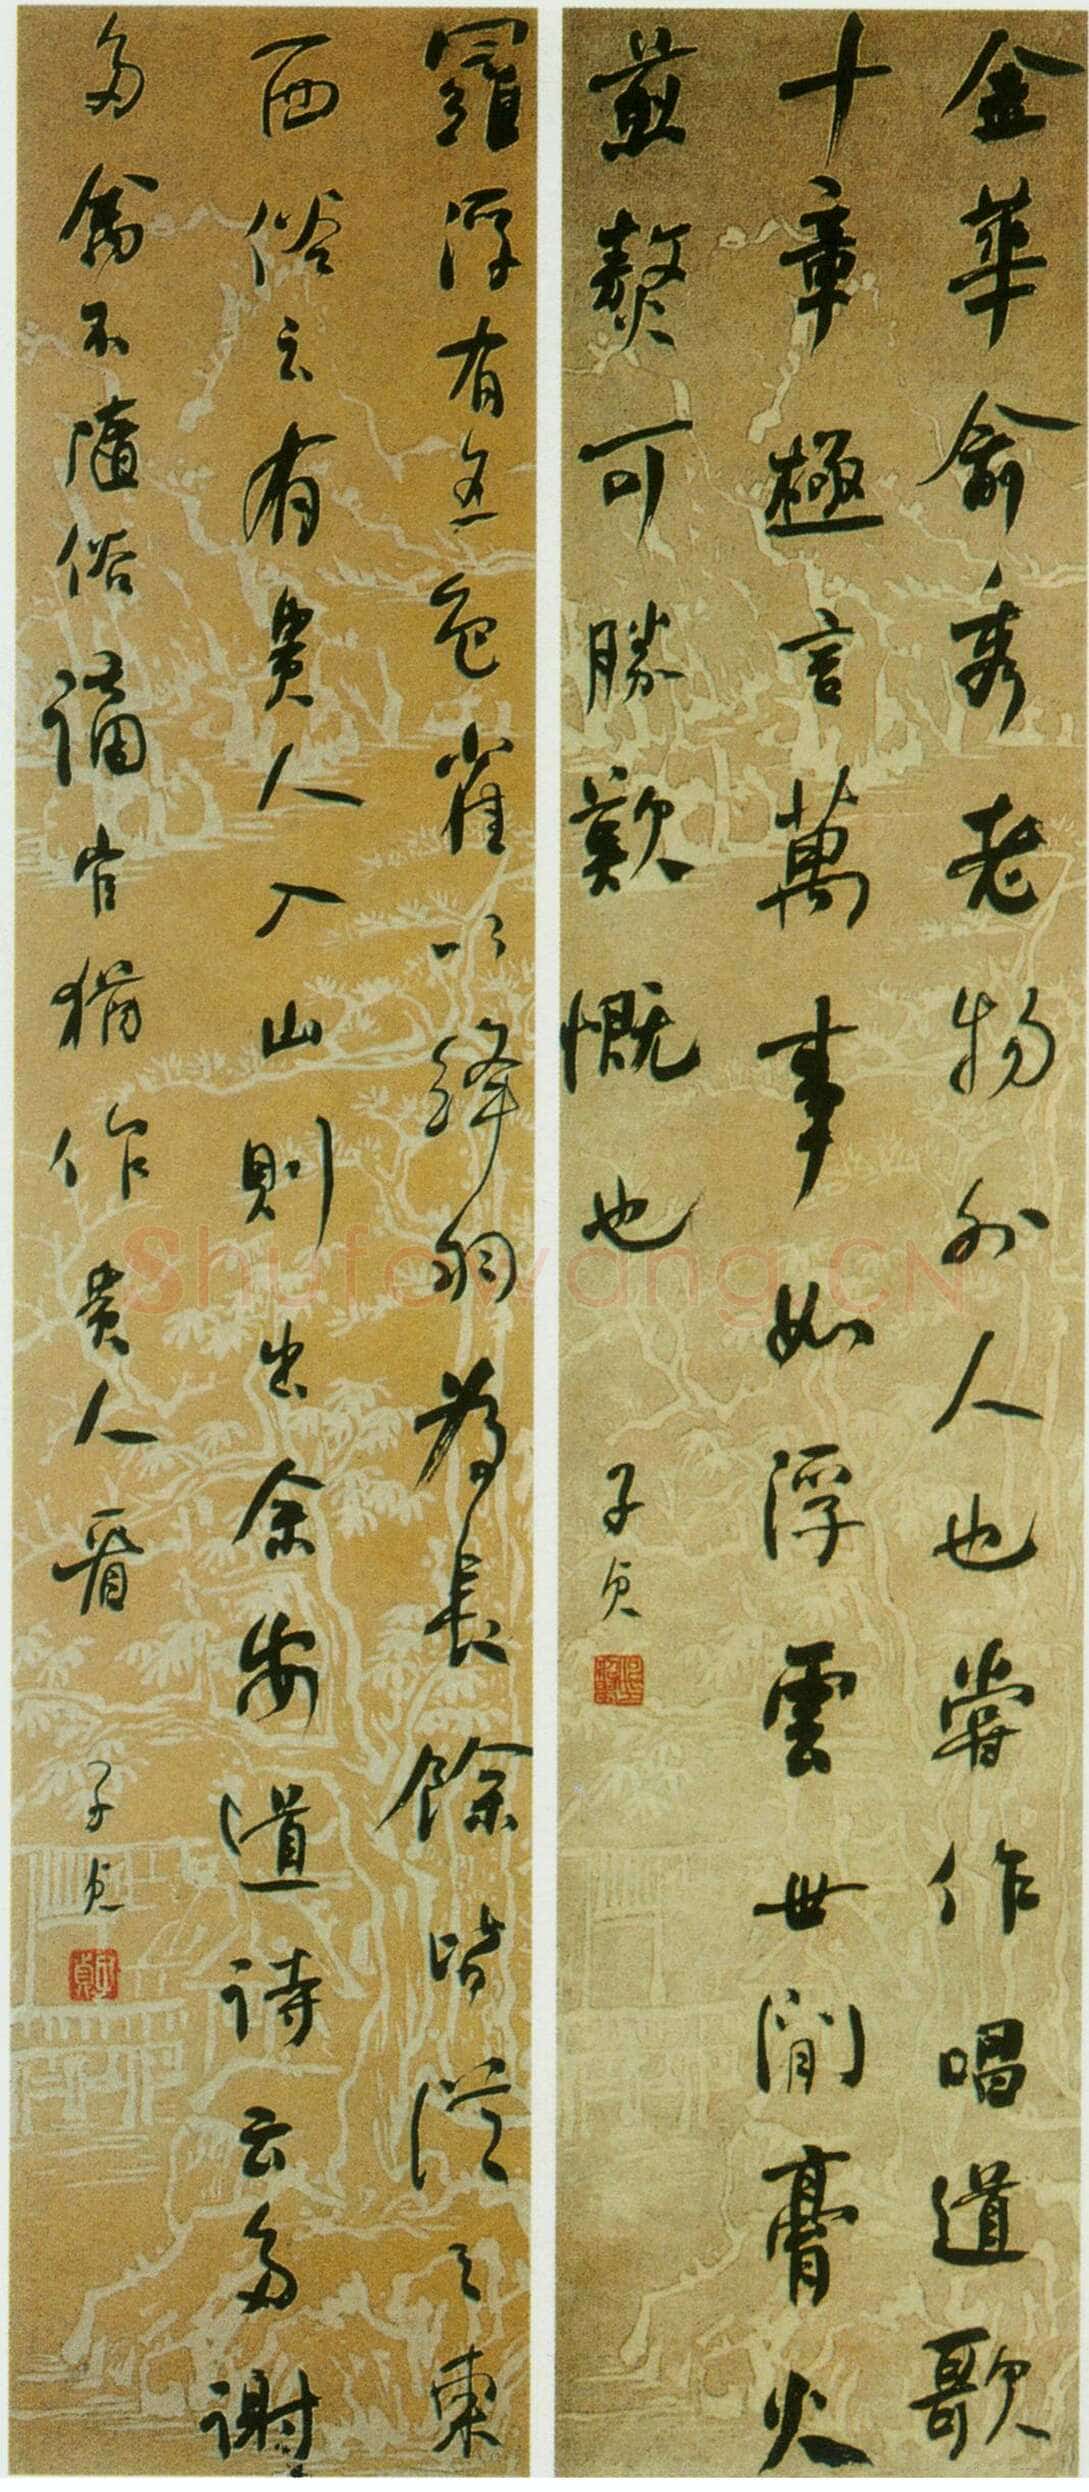 金華俞秀老物外人也嘗作唱道歌
十章極言萬事如浮雲世閒膏火
煎熬可勝歎慨也
子貞
羅浮有五色雀以絳羽為長餘皆從之東
西俗云有貴人入山則出余安道詩云多謝
多禽不隨俗謫官猶作貴人看
子貞
子貞
Shufawang.CN